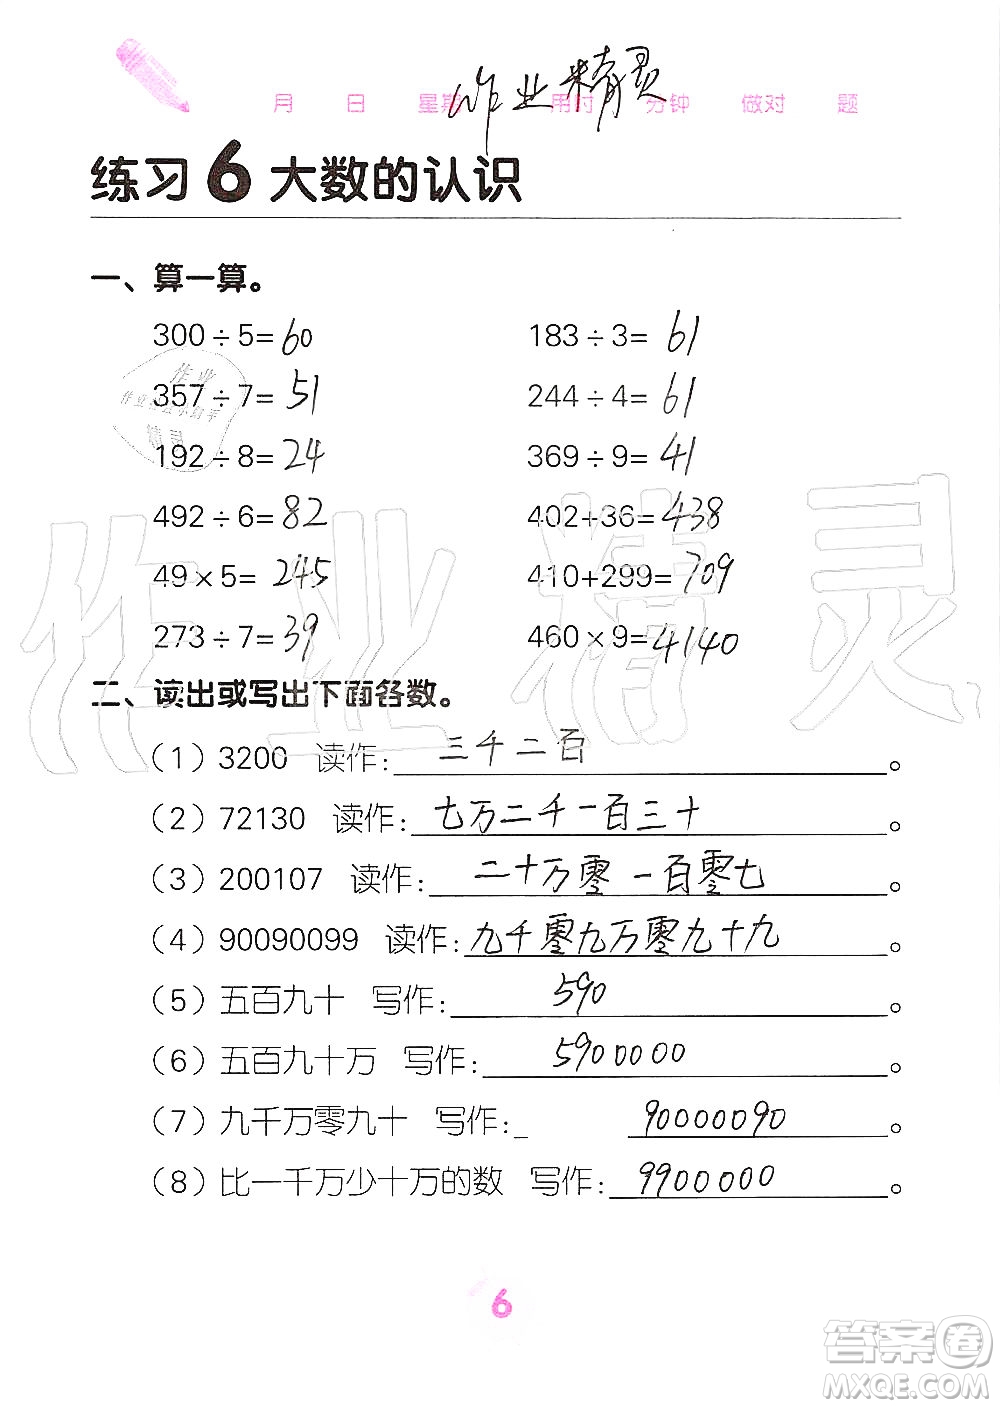 作业精灵
月 日 星期 用时 分钟 做对 题
练习6 大数的认识
一、算一算。
300÷5=60 183÷3=61
357÷7=51 244÷4=61
192÷8=24 369÷9=41
492÷6=82 402+36=438
49×5=245 410+299=709
273÷7=39 460×9=4140
二、读出或写出下面各数。
（1）3200 读作：三千二百。
（2）72130 读作：七万二千一百三十。
（3）200107 读作：二十万零一百零七。
（4）90090099 读作：九千零九万零九十九。
（5）五百九十 写作：590。
（6）五百九十万 写作：5900000。
（7）九千万零九十 写作：90000090。
（8）比一千万少十万的数 写作：9900000。
6
作业精灵
答案圈
MXQE.COM